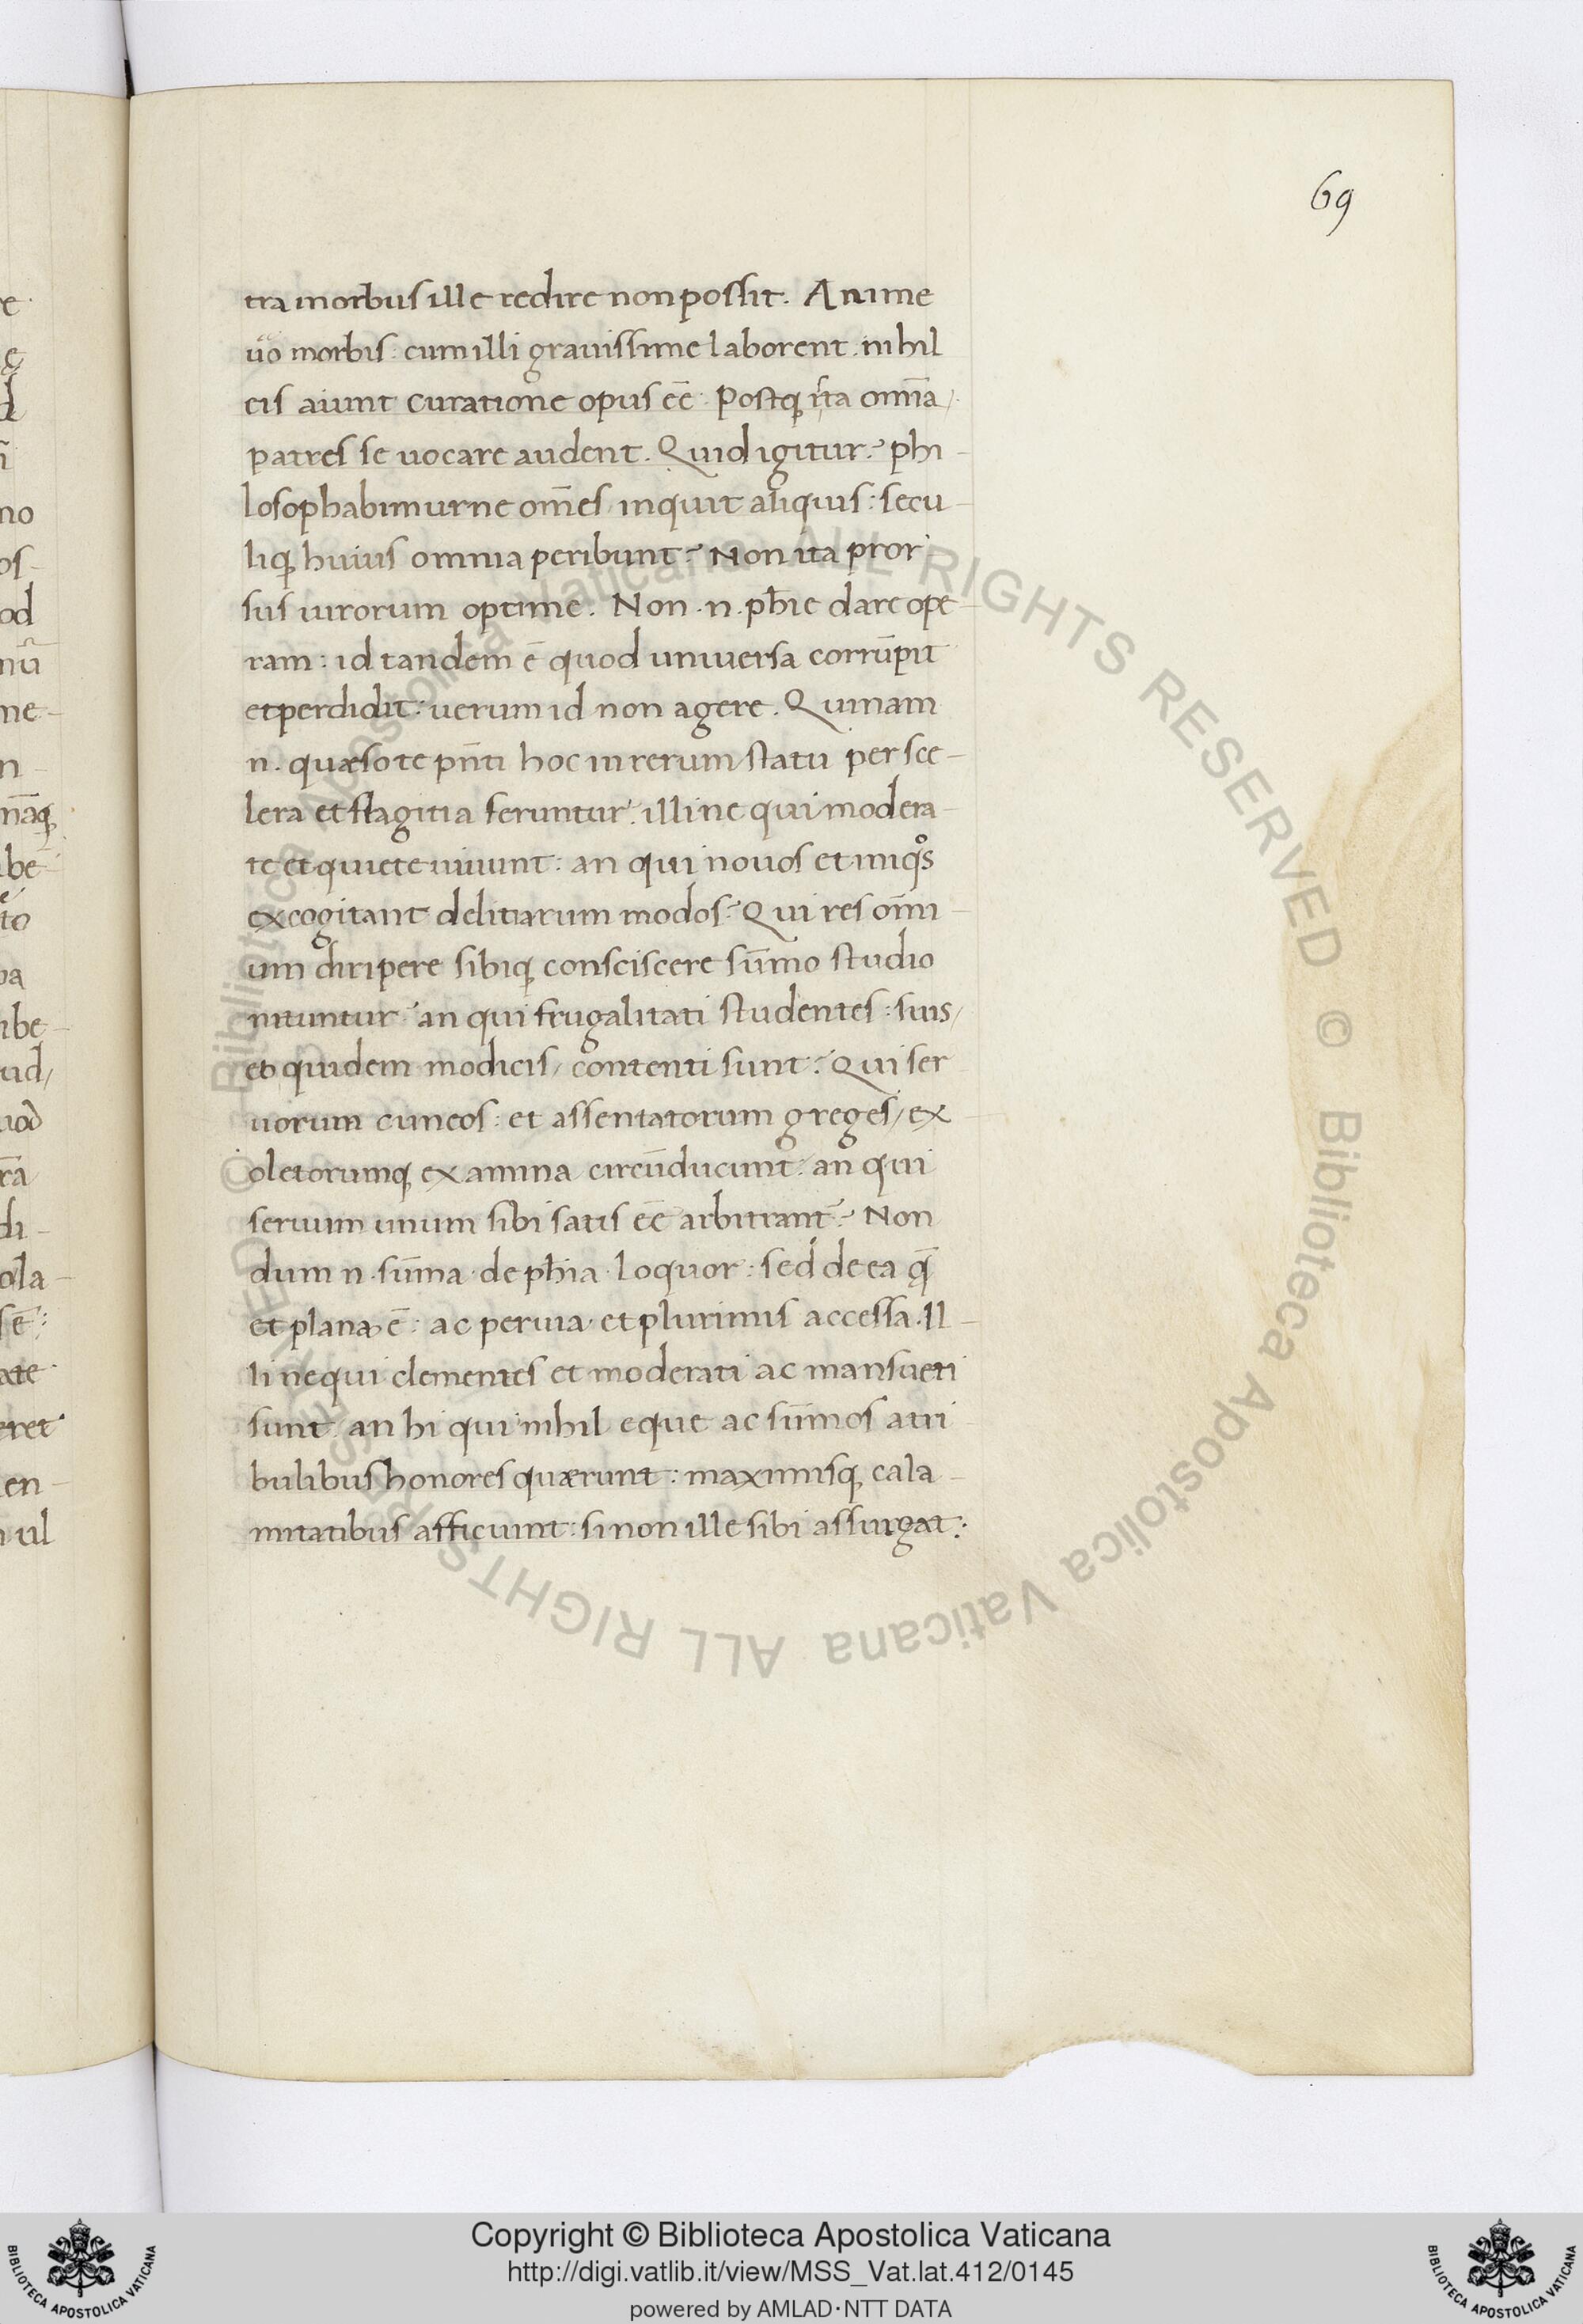 69
tra morbus ille redire non possit. Anime
uo morbis: cum illi grauissime laborent. nihil
eis aiunt curatione opus eē. Postq̄ ita om̄ia,
patres se uocare audent. Quid igitur? phi-
losophabimurne om̄es inquit aliquis: secu-
liq; huius omnia peribunt? Non ita pror
sus uirorum optime. Non .n. phīe dare ope-
ram: id tandem ē quod uniuersa corrūpit
et perdidit: uerum id non agere. Quinam
.n. quæso te pn̄ti hoc in rerum statu per sce-
lera et flagitia feruntur? illine qui modera-
te et quiete uiuunt: an qui nouos et iniqos
excogitant delitiarum modos? Qui res om̄i-
um diripere sibiq; consciscere sūmo studio
nituntur? an qui frugalitati studentes: suis,
et quidem modicis, contenti sunt? Qui ser
uorum cuneos: et assentatorum greges, ex-
oletorumq; examina circūducunt: an qui
seruum unum sibi satis eē arbitrant̄? Non
dum .n. sūma de phīa loquor: sed de ea q̄
et plana ē: ac peruia et plurimis accessa. Il-
line qui clementes et moderati ac mansueti
sunt an hi qui nihil eque ac sūmos a tri
bulibus honores quærunt: maximisq; cala-
mitatibus afficiunt: si non ille sibi assurgat:
Copyright © Biblioteca Apostolica Vaticana
http://digi.vatlib.it/view/MSS_Vat.lat.412/0145
powered by AMLAD·NTT DATA
BIBLIOTECA APOSTOLICA VATICANA
BIBLIOTECA APOSTOLICA VATICANA
© Biblioteca Apostolica Vaticana ALL RIGHTS RESERVED © Biblioteca Apostolica Vaticana ALL RIGHTS RESERVED